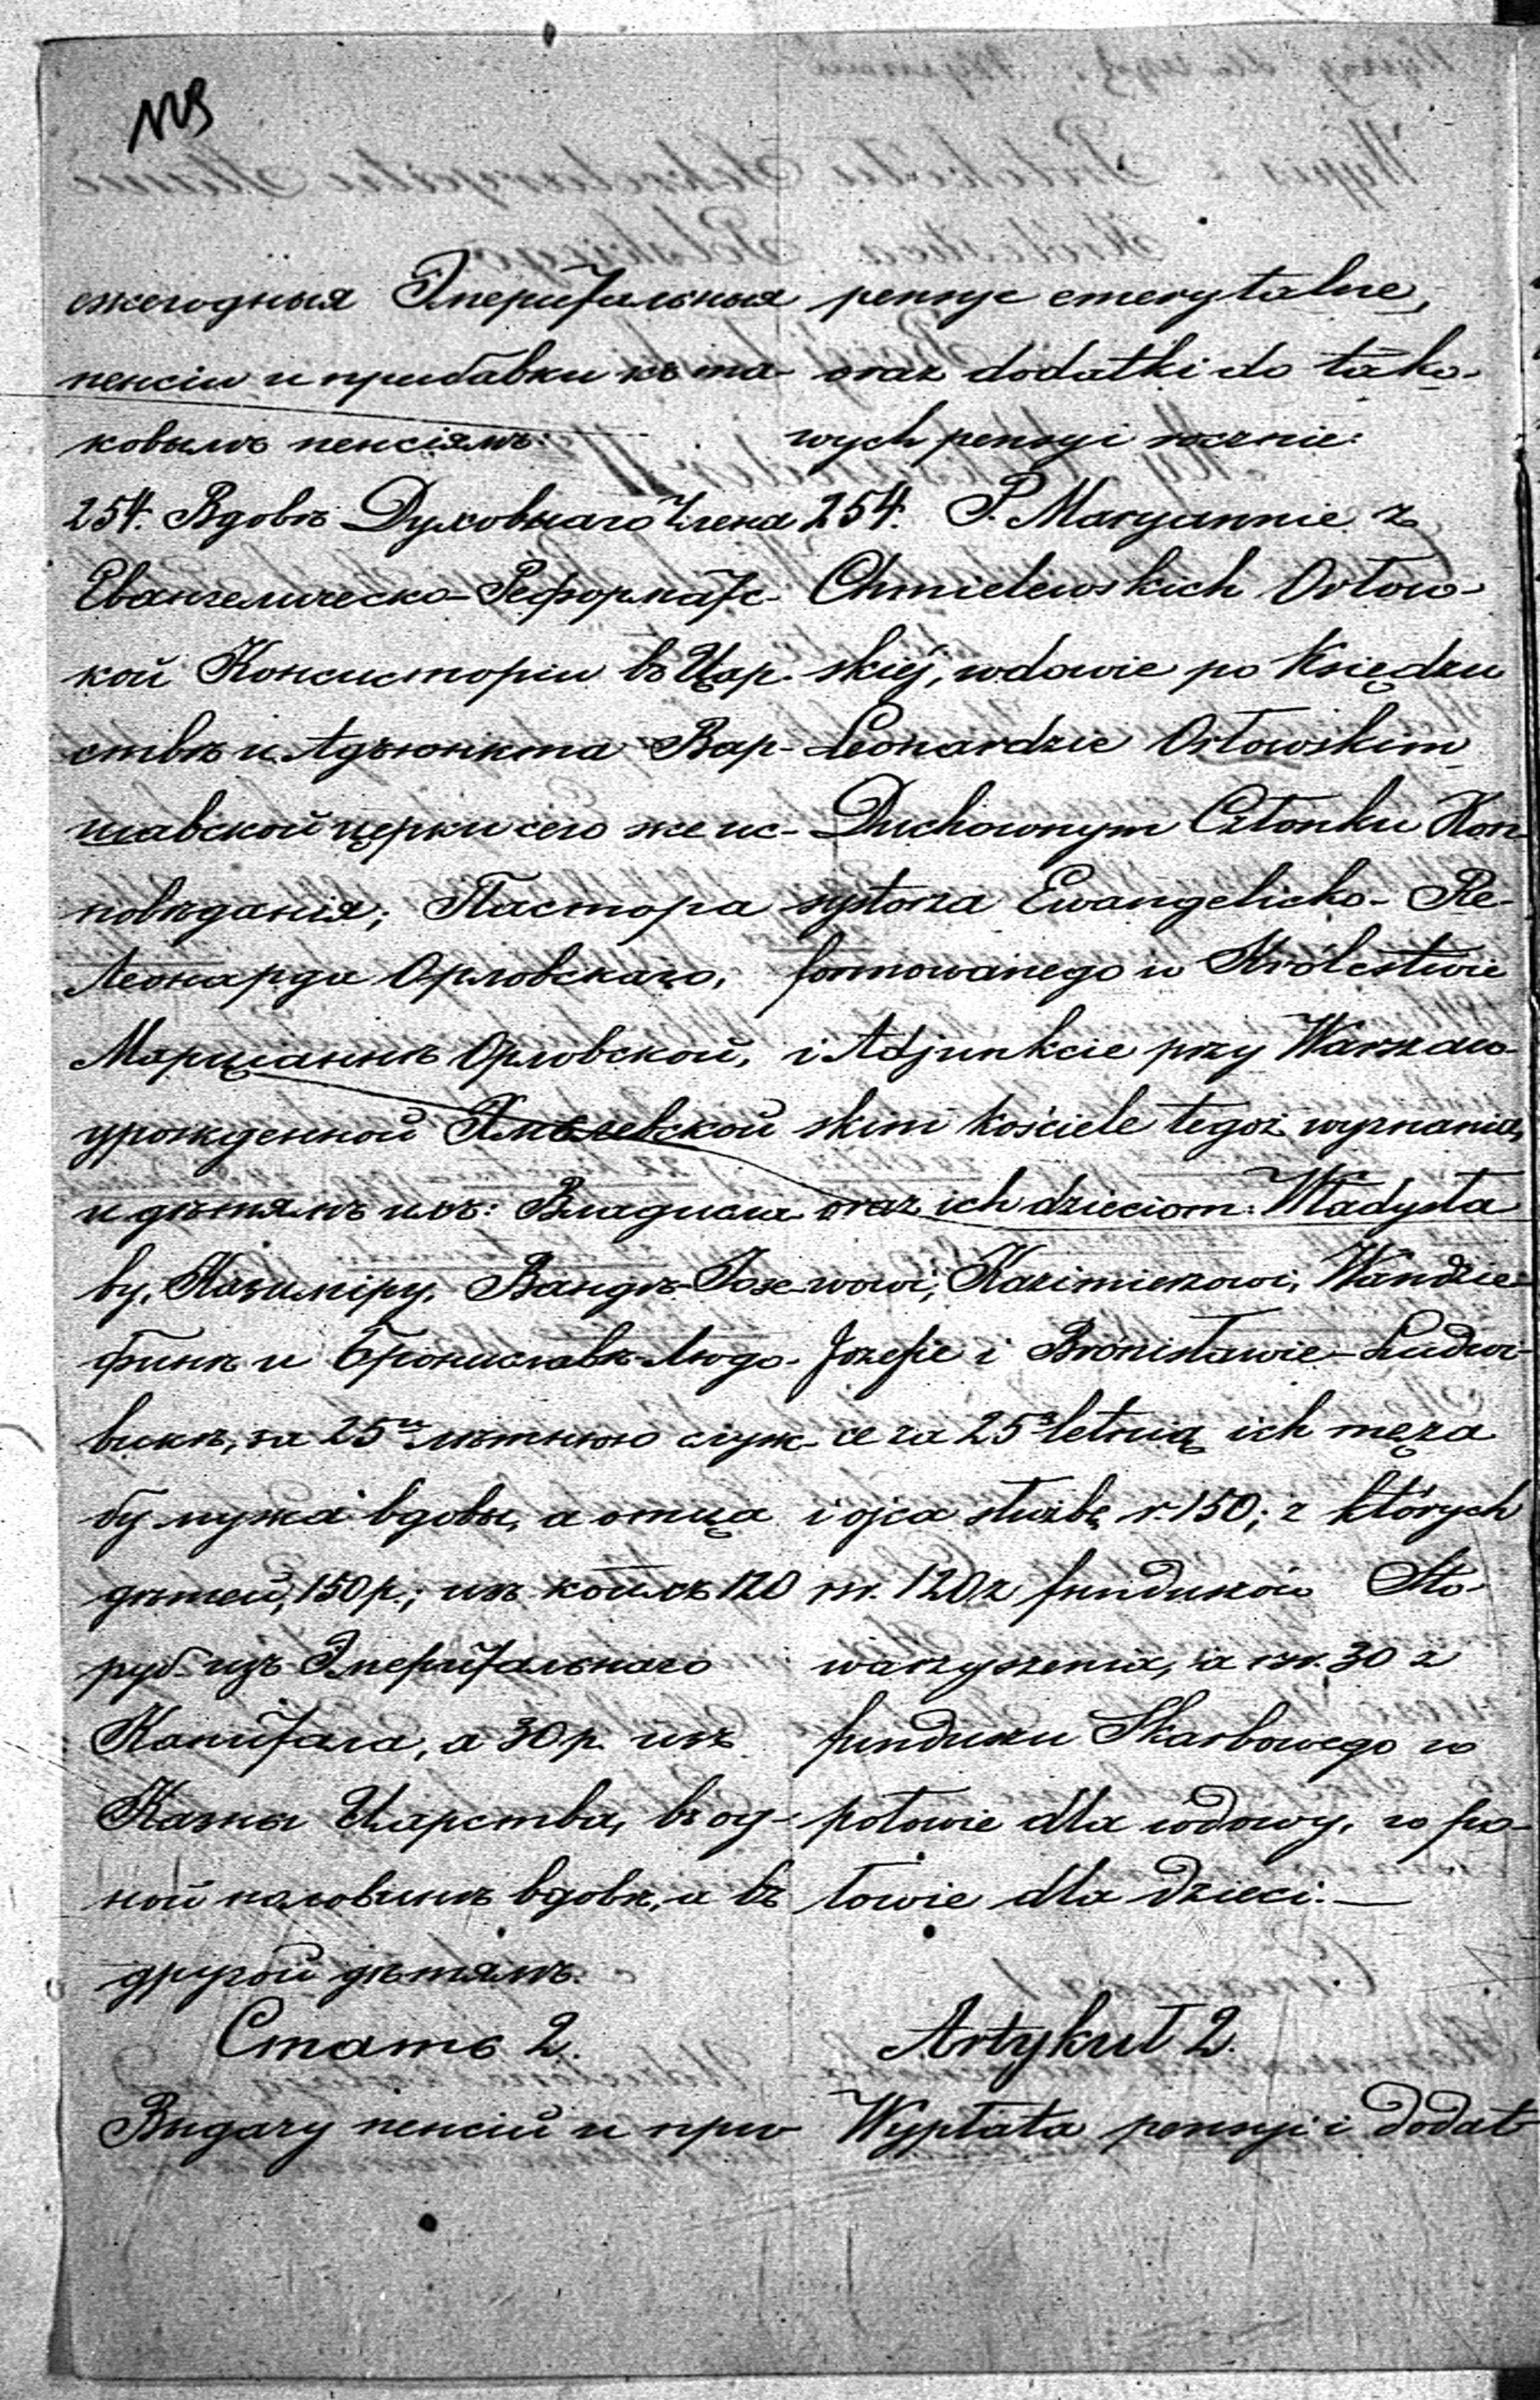 ежегодныя Эмеритальныя
пенсіи и прибавки къ та-
ковымъ пенсіямъ:
254. Вдовѣ Духовнаго Члена
Евангелическо-Реформатс-
кой Консисторіи въ Цар-
ствѣ и Адъюнкта Вар-
шавской церкви сего же ис-
повѣданія, Пастора
Леонарда Орловскаго,
Марцыаннѣ Орловской,
урожденной Хмѣлевской
и дѣтямъ ихъ: Владисла-
ву, Казиміру, Вандѣ-Іозе-
финѣ и Брониславѣ-Людо-
викѣ, за 25и лѣтнюю служ-
бу мужа вдовы, а отца
дѣтей, 150 р.; изъ коихъ 120
руб. изъ Эмеритальнаго
Капитала, а 30 р. изъ
Казны Царства, въ од-
ной половинѣ вдовѣ, а въ
другой дѣтямъ.
Стать 2.
Выдачу пенсій и при
pensye emerytalne,
oraz dodatki do tako-
wych pensyi rocznie:
254. P. Maryannie z
Chmielewskich Orłow-
skiéj, wdowie po Księdzu
Leonardzie Orłowskim
Duchownym Członku Kon-
systorza Ewangelicko-Re-
formowanego w Królestwie
i Adjunkcie przy Warszaw-
skim kościele tegoż wyznania,
oraz ich dzieciom: Władysła
wowi, Kazimierzowi, Wandzie-
Jozefie i Bronisławie-Ludwi-
ce za 25 letnią ich męża
i ojca służbę r. 150; z których
rsr. 120 z funduszów Sto-
warzyszenia, a rsr. 30 z
funduszu Skarbowego w
połowie dla wdowy, w po-
łowie dla dzieci.—
Artykuł 2.
Wypłata pensyi i dodat